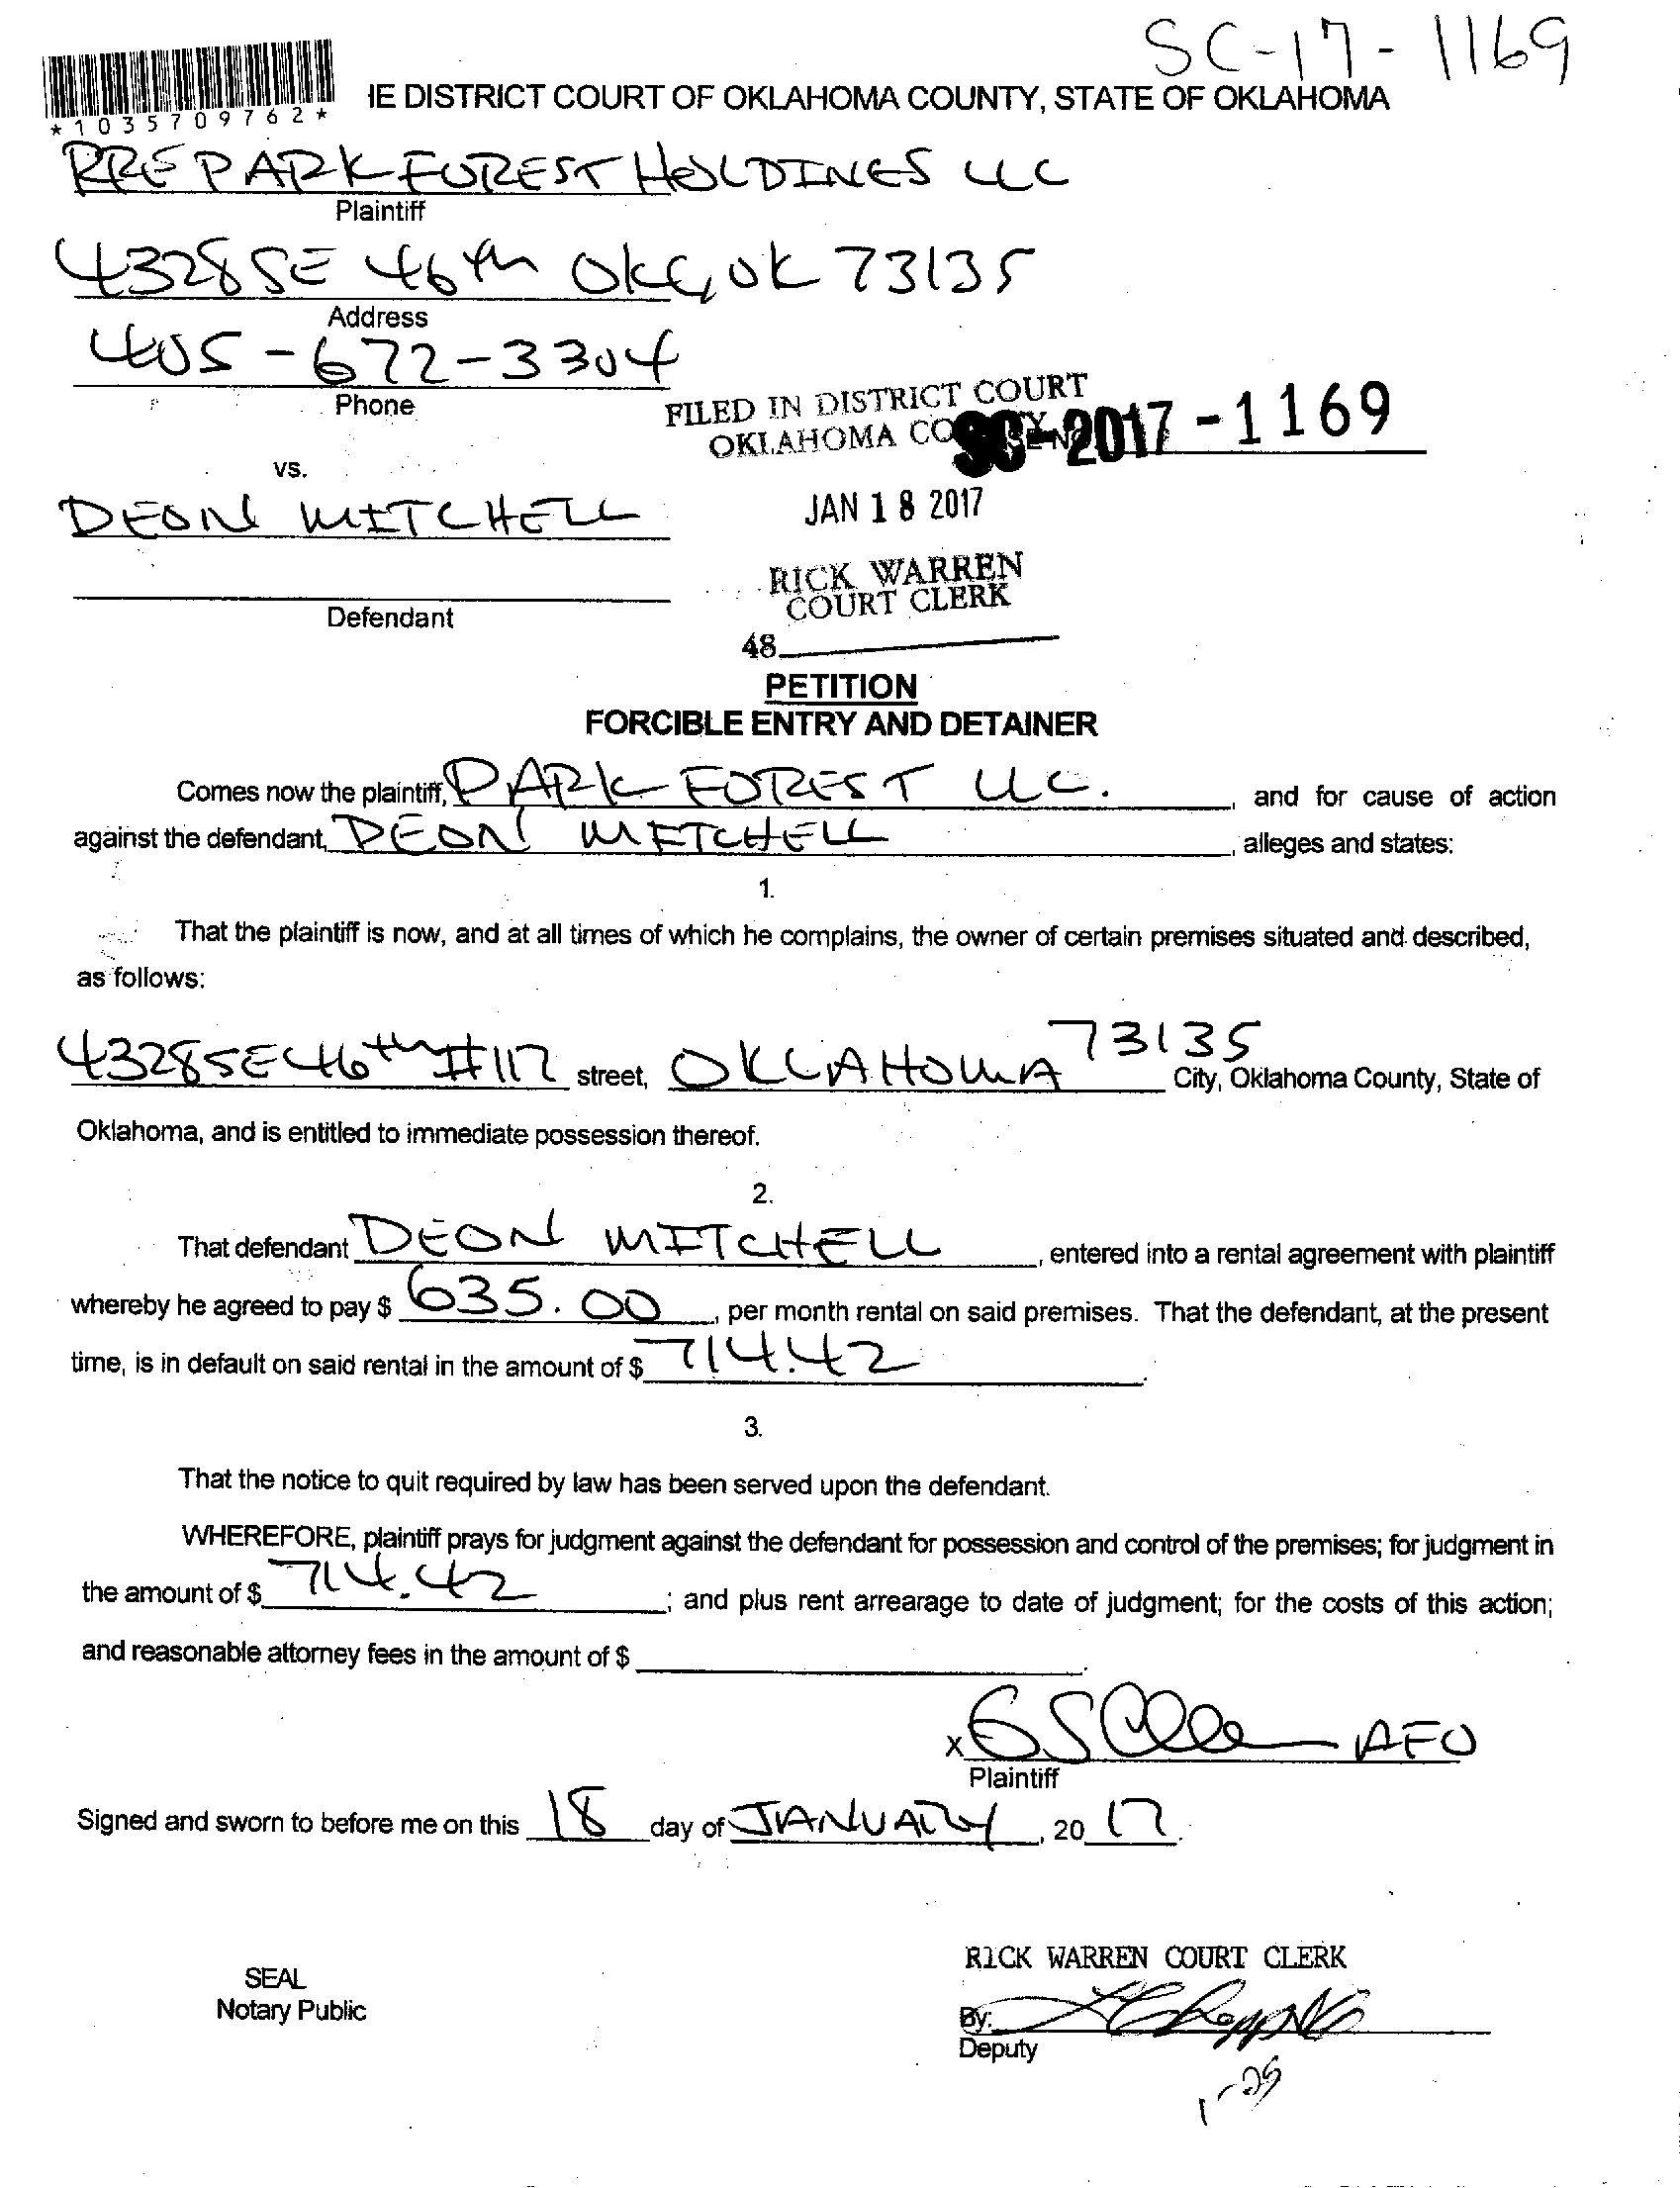 SC-17-1169
*1035709762*
IE DISTRICT COURT OF OKLAHOMA COUNTY, STATE OF OKLAHOMA
RRE PARK FOREST HOLDINGS LLC
Plaintiff
4328 SE 46th OKC, OK 73135
Address
405-672-3304
Phone
FILED IN DISTRICT COURT
OKLAHOMA CO
SC-2017-1169
vs.
DEON MITCHELL
JAN 18 2017
RICK WARREN
COURT CLERK
Defendant
48
PETITION
FORCIBLE ENTRY AND DETAINER
Comes now the plaintiff, PARK FOREST LLC. , and for cause of action
against the defendant, DEON MITCHELL , alleges and states:
1.
That the plaintiff is now, and at all times of which he complains, the owner of certain premises situated and described,
as follows:
4328 SE 46th #117 street, OKLAHOMA 73135 City, Oklahoma County, State of
Oklahoma, and is entitled to immediate possession thereof.
2.
That defendant DEON MITCHELL , entered into a rental agreement with plaintiff
whereby he agreed to pay $ 635.00 , per month rental on said premises. That the defendant, at the present
time, is in default on said rental in the amount of $ 714.42 .
3.
That the notice to quit required by law has been served upon the defendant.
WHEREFORE, plaintiff prays for judgment against the defendant for possession and control of the premises; for judgment in
the amount of $ 714.42 ; and plus rent arrearage to date of judgment; for the costs of this action;
and reasonable attorney fees in the amount of $ .
x AFO
Plaintiff
Signed and sworn to before me on this 18 day of JANUARY , 20 17.
RICK WARREN COURT CLERK
SEAL
Notary Public
By:
Deputy
1-25